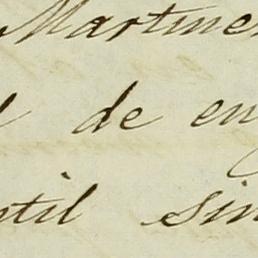 Martine
de en
til sin